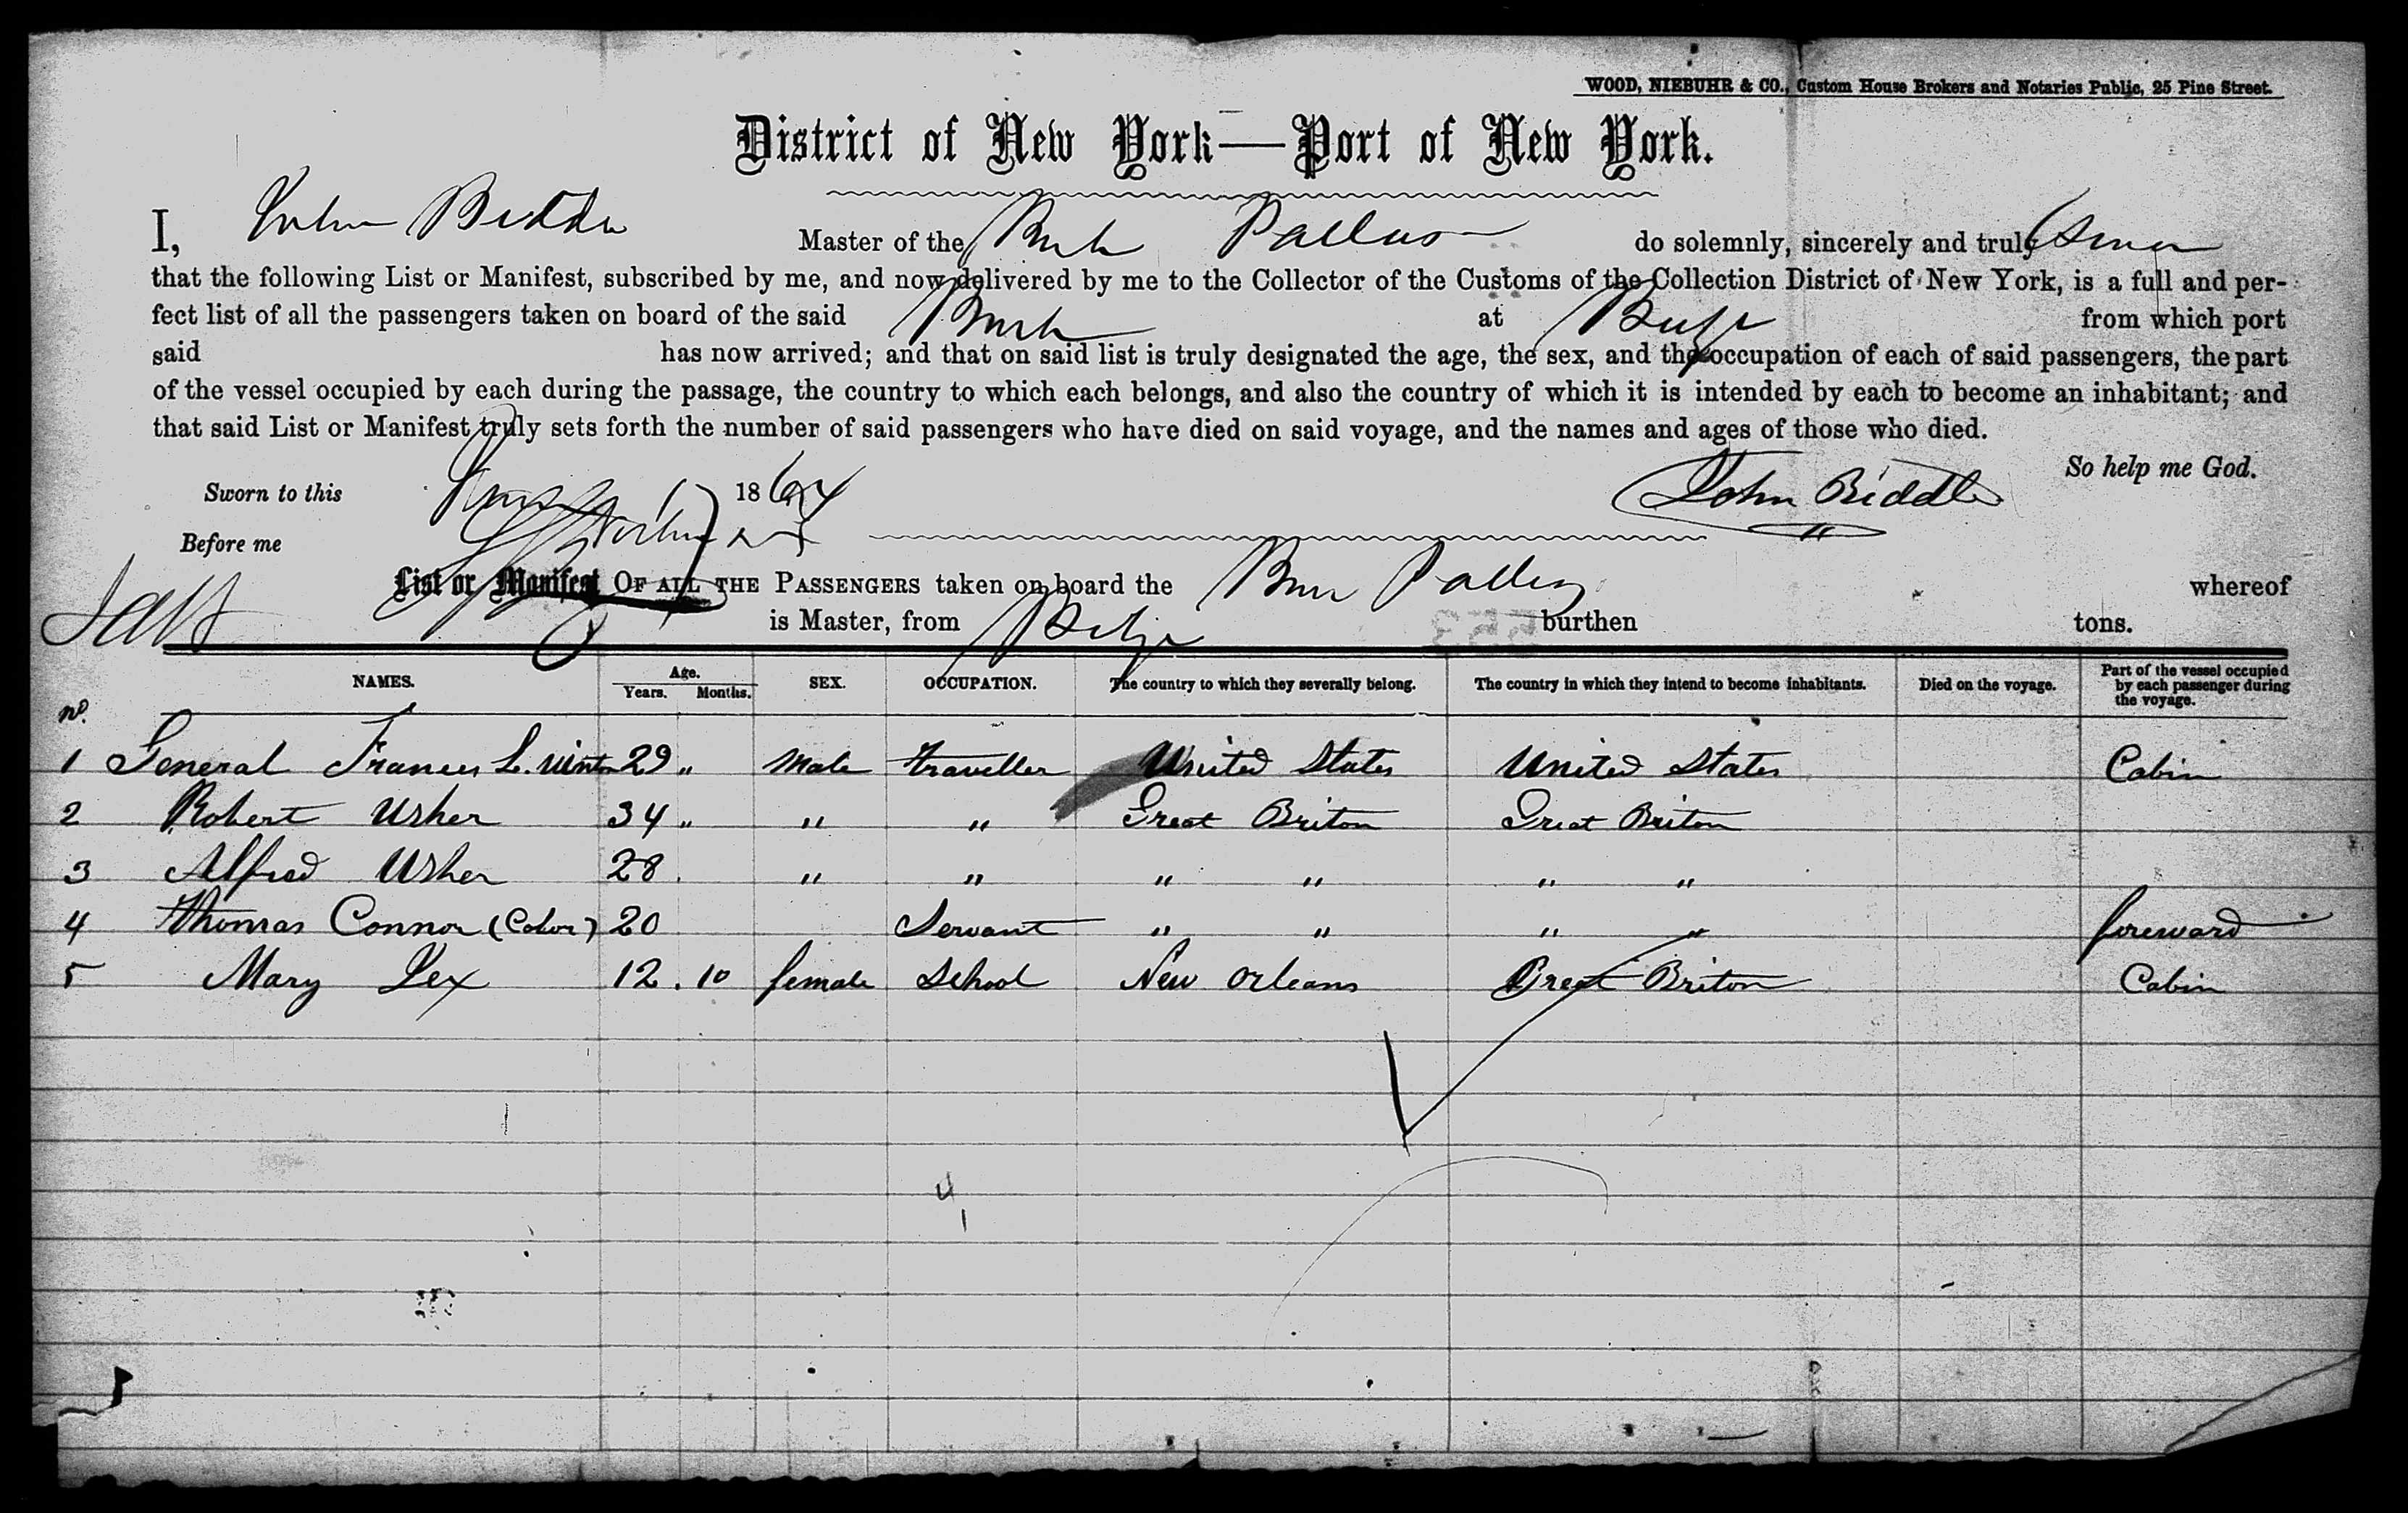 WOOD, NIEBUHR & CO., Custom House Brokers and Notaries Public, 25 Pine Street.
District of New York—Port of New York.
I, John Biddle Master of the Bark Pallas do solemnly, sincerely and truly swear
that the following List or Manifest, subscribed by me, and now delivered by me to the Collector of the Customs of the Collection District of New York, is a full and per-
fect list of all the passengers taken on board of the said Bark at from which port
said has now arrived; and that on said list is truly designated the age, the sex, and the occupation of each of said passengers, the part
of the vessel occupied by each during the passage, the country to which each belongs, and also the country of which it is intended by each to become an inhabitant; and
that said List or Manifest truly sets forth the number of said passengers who have died on said voyage, and the names and ages of those who died.
So help me God.
Sworn to this 1864 John Biddle
Before me
List or Manifest OF ALL THE PASSENGERS taken on board the whereof
is Master, from burthen tons.
NAMES. Age. Years. Months. SEX. OCCUPATION. The country to which they severally belong. The country in which they intend to become inhabitants. Died on the voyage. Part of the vessel occupied by each passenger during the voyage.
No.
1 General Frances L. Vinton 29 " Male traveller United States United States Cabin
2 Robert Usher 34 " " " Great Briton Great Briton
3 Alfred Usher 28. " " " " " "
4 Thomas Connor (Color) 20 Servant " " " " foreward
5 Mary Lex 12. 10 female School New Orleans Great Briton Cabin
4
1